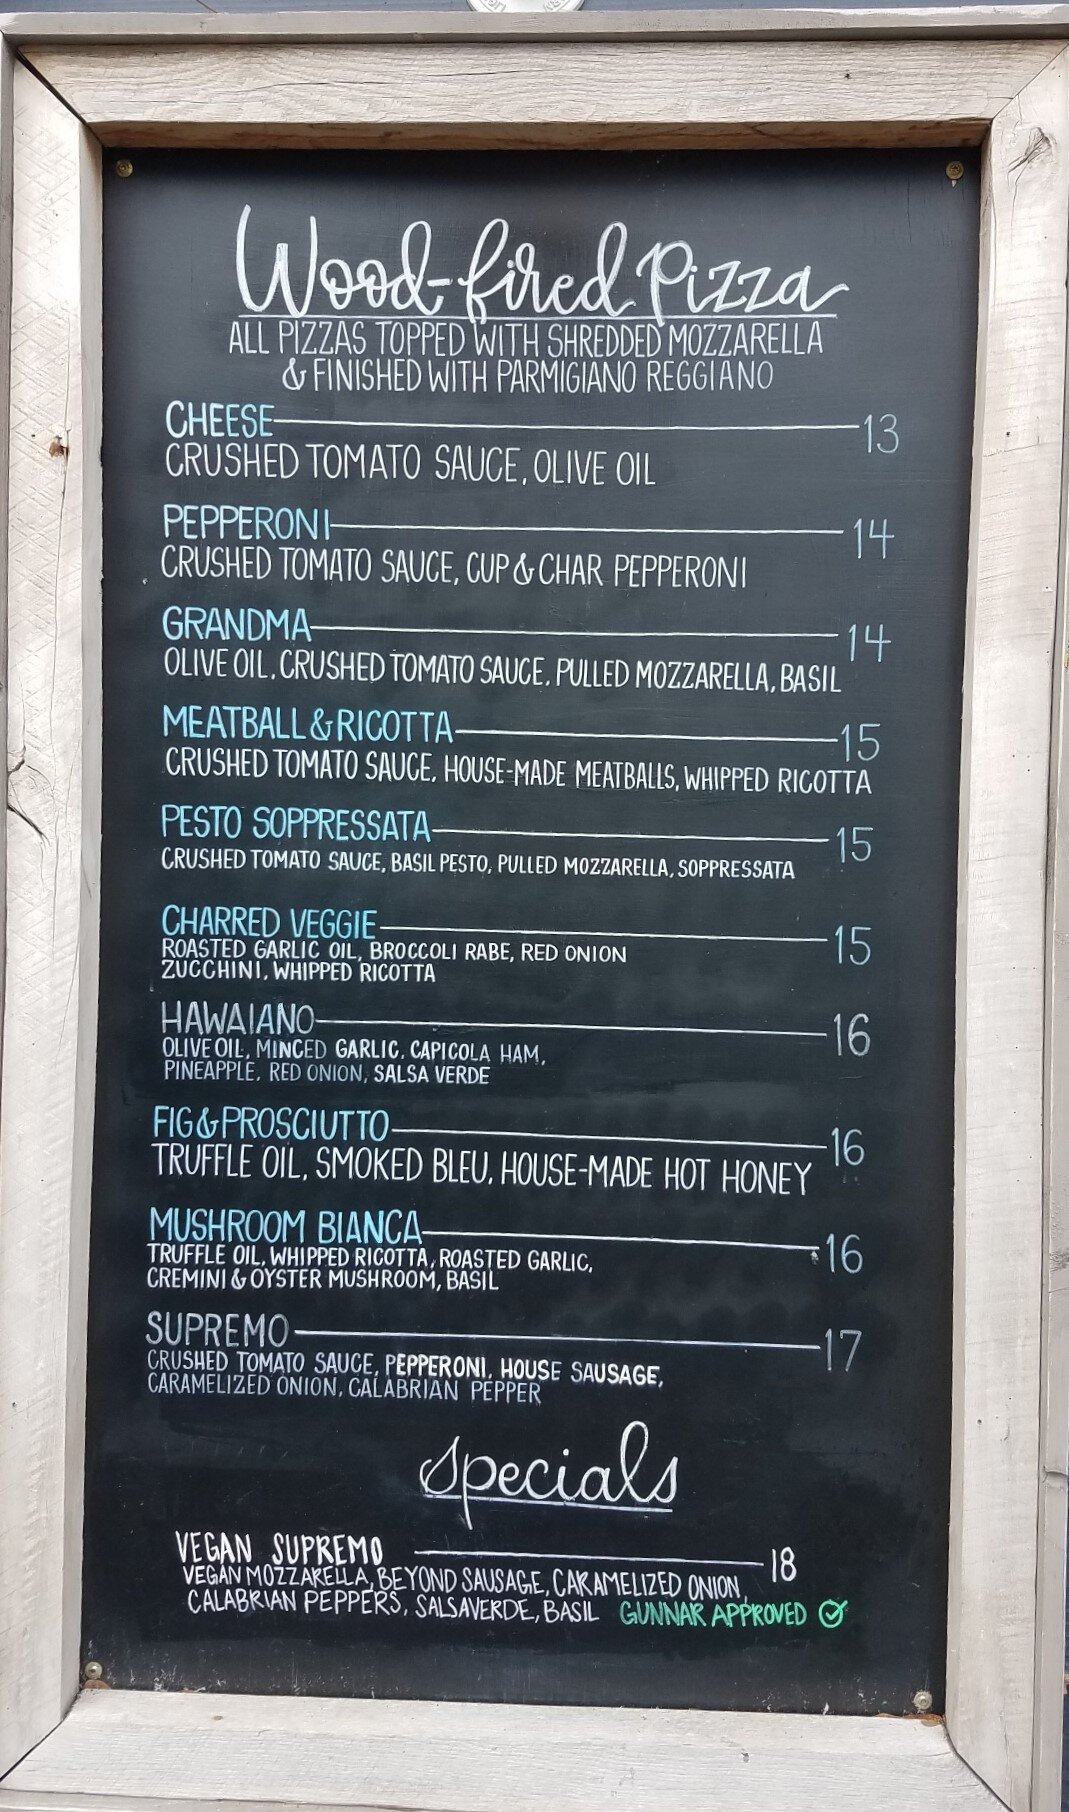 Wood-fired Pizza
ALL PIZZAS TOPPED WITH SHREDDED MOZZARELLA
& FINISHED WITH PARMIGIANO REGGIANO
CHEESE 13
CRUSHED TOMATO SAUCE, OLIVE OIL
PEPPERONI 14
CRUSHED TOMATO SAUCE, CUP & CHAR PEPPERONI
GRANDMA 14
OLIVE OIL, CRUSHED TOMATO SAUCE, PULLED MOZZARELLA, BASIL
MEATBALL & RICOTTA 15
CRUSHED TOMATO SAUCE, HOUSE-MADE MEATBALLS, WHIPPED RICOTTA
PESTO SOPPRESSATA 15
CRUSHED TOMATO SAUCE, BASIL PESTO, PULLED MOZZARELLA, SOPPRESSATA
CHARRED VEGGIE 15
ROASTED GARLIC OIL, BROCCOLI RABE, RED ONION
ZUCCHINI, WHIPPED RICOTTA
HAWAIANO 16
OLIVE OIL, MINCED GARLIC, CAPICOLA HAM,
PINEAPPLE, RED ONION, SALSA VERDE
FIG & PROSCIUTTO 16
TRUFFLE OIL, SMOKED BLEU, HOUSE-MADE HOT HONEY
MUSHROOM BIANCA 16
TRUFFLE OIL, WHIPPED RICOTTA, ROASTED GARLIC,
CREMINI & OYSTER MUSHROOM, BASIL
SUPREMO 17
CRUSHED TOMATO SAUCE, PEPPERONI, HOUSE SAUSAGE,
CARAMELIZED ONION, CALABRIAN PEPPER
specials
VEGAN SUPREMO 18
VEGAN MOZZARELLA, BEYOND SAUSAGE, CARAMELIZED ONION,
CALABRIAN PEPPERS, SALSAVERDE, BASIL GUNNAR APPROVED